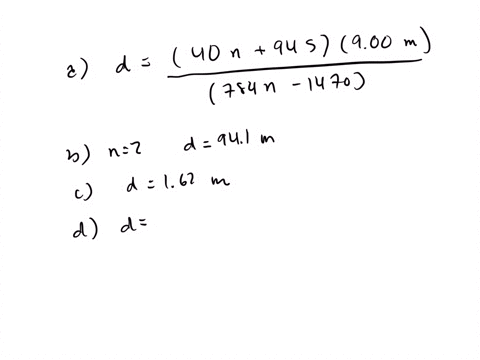 a) d = (40n + 945)(9.00 m) / (784n - 1470)
b) n=2 d = 94.1 m
c) d = 1.62 m
d) d =